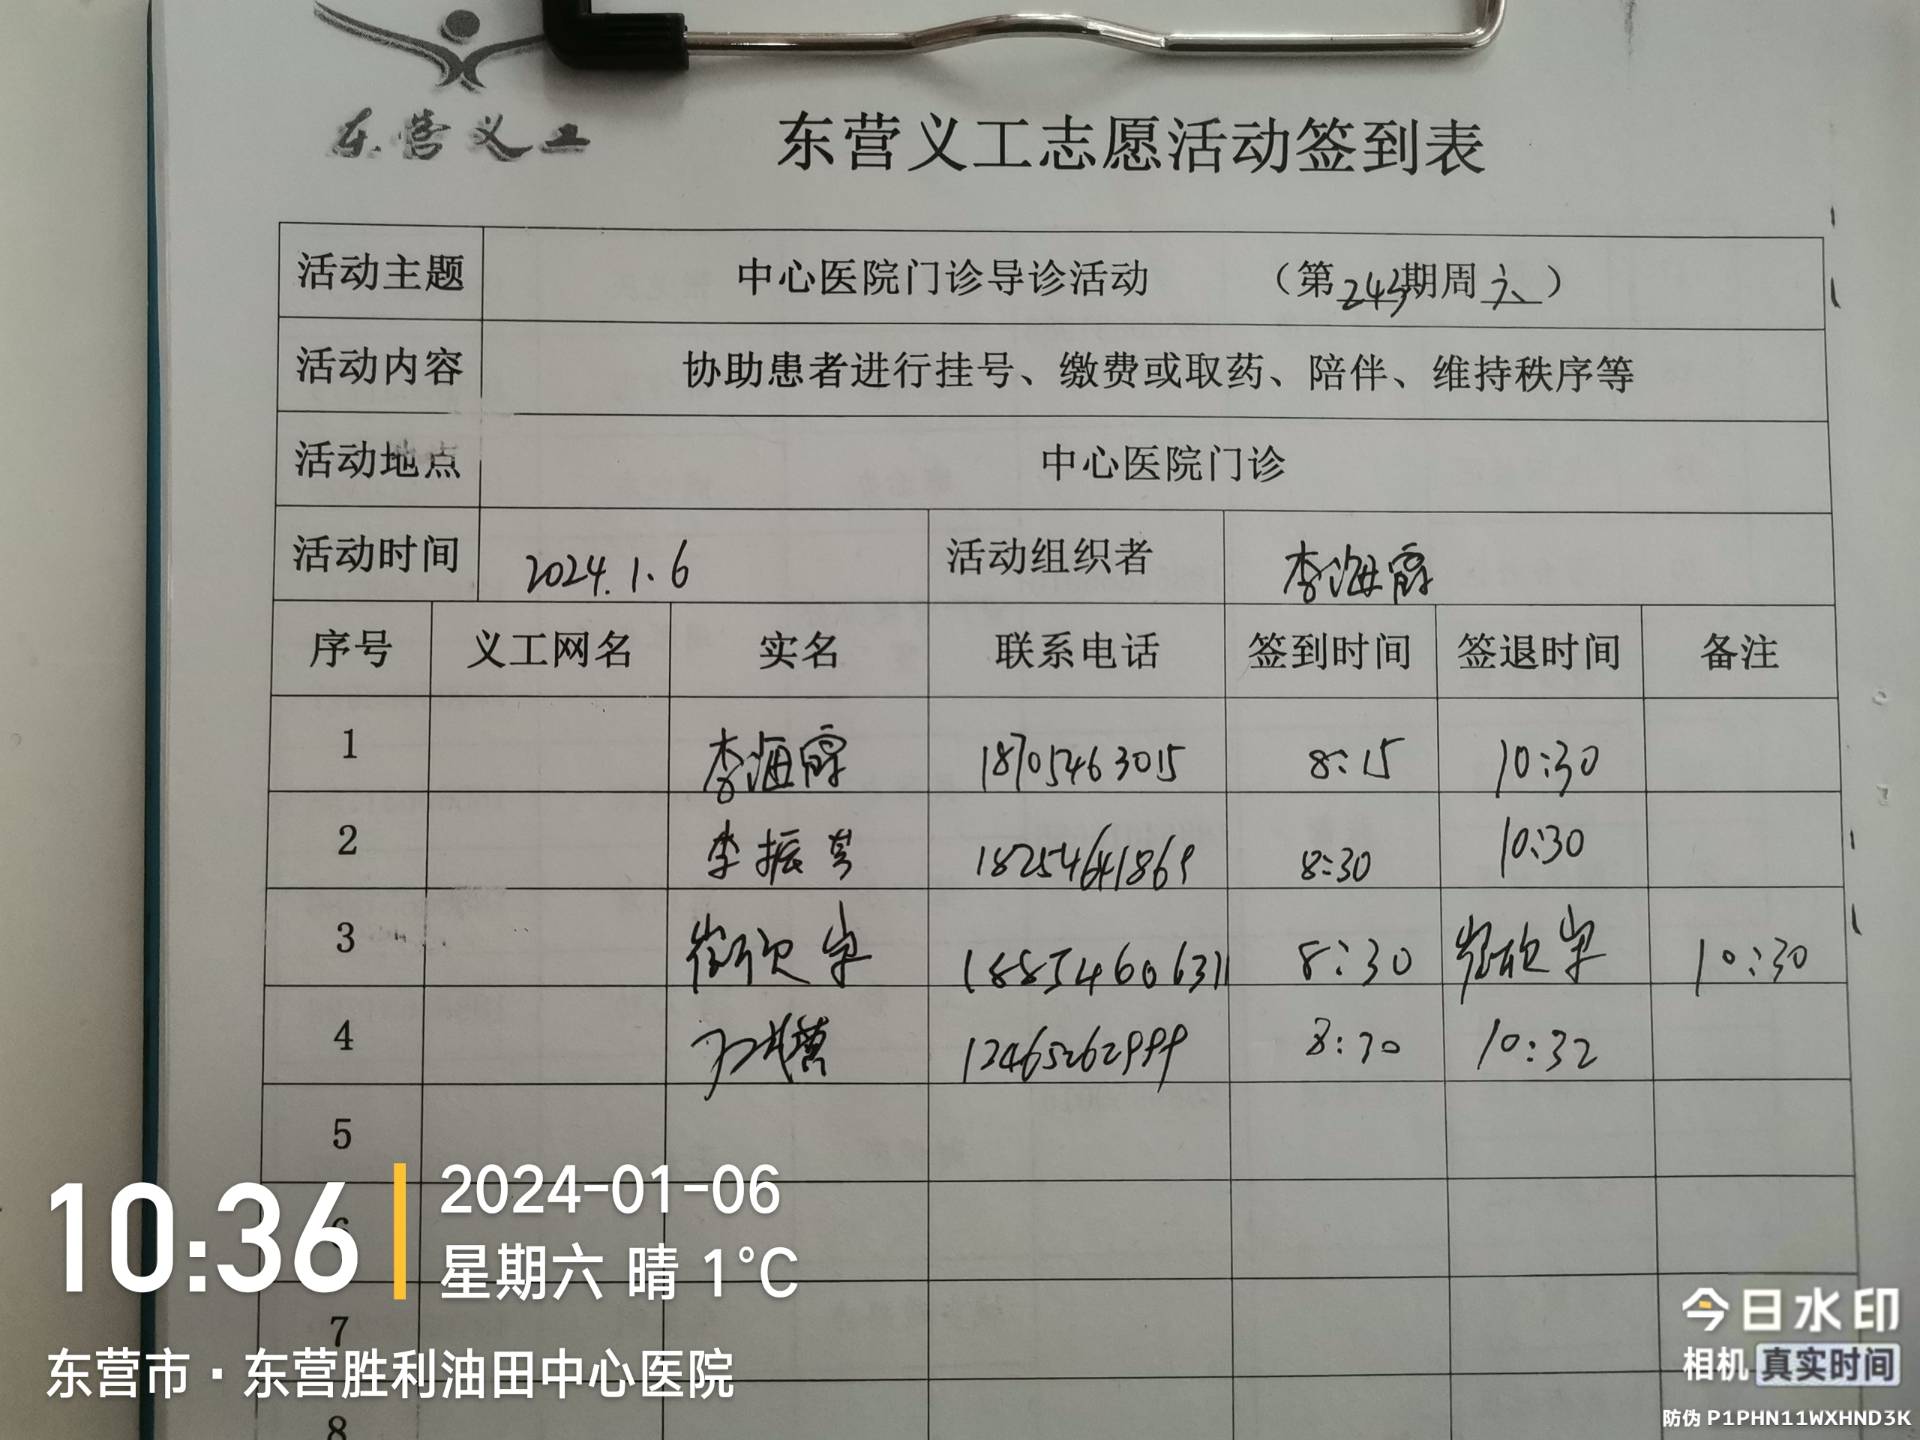 东营义工
东营义工志愿活动签到表
活动主题 中心医院门诊导诊活动 （第243期周六）
活动内容 协助患者进行挂号、缴费或取药、陪伴、维持秩序等
活动地点 中心医院门诊
活动时间 2024.1.6 活动组织者 李海霞
序号 义工网名 实名 联系电话 签到时间 签退时间 备注
1 李海霞 18705463015 8:15 10:30
2 李振 18254641869 8:30 10:30
3 崔欣宇 18854606311 8:30 崔欣宇 10:30
4 8:30 10:32
5
6
7
8
10:36
2024-01-06
星期六 晴 1°C
东营市·东营胜利油田中心医院
今日水印
相机 真实时间
防伪 P1PHN11WXHND3K